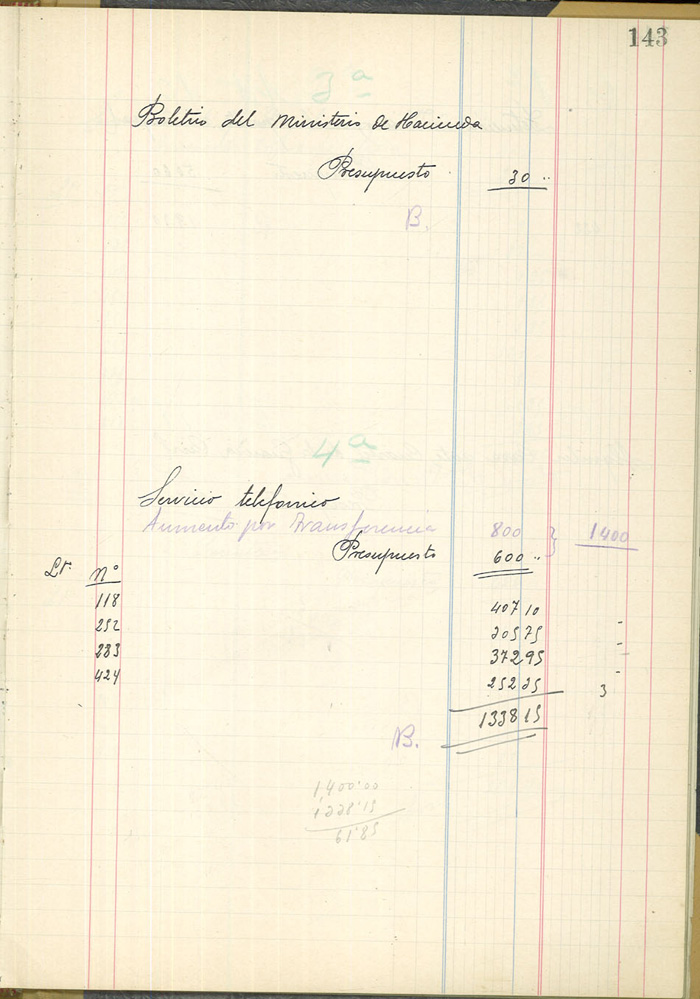 143
3ª
Boletin del Ministerio de Hacienda
Presupuesto 30 ..
B.
4ª
Servicio telefonico
Aumento por transferencia 800 } 1400
Presupuesto 600 ..
Lº. Nº
118 407 10
252 305 75
283 372 95
424 252 35 3
1338 15
B.
1,400'00
1,338'15
61'85